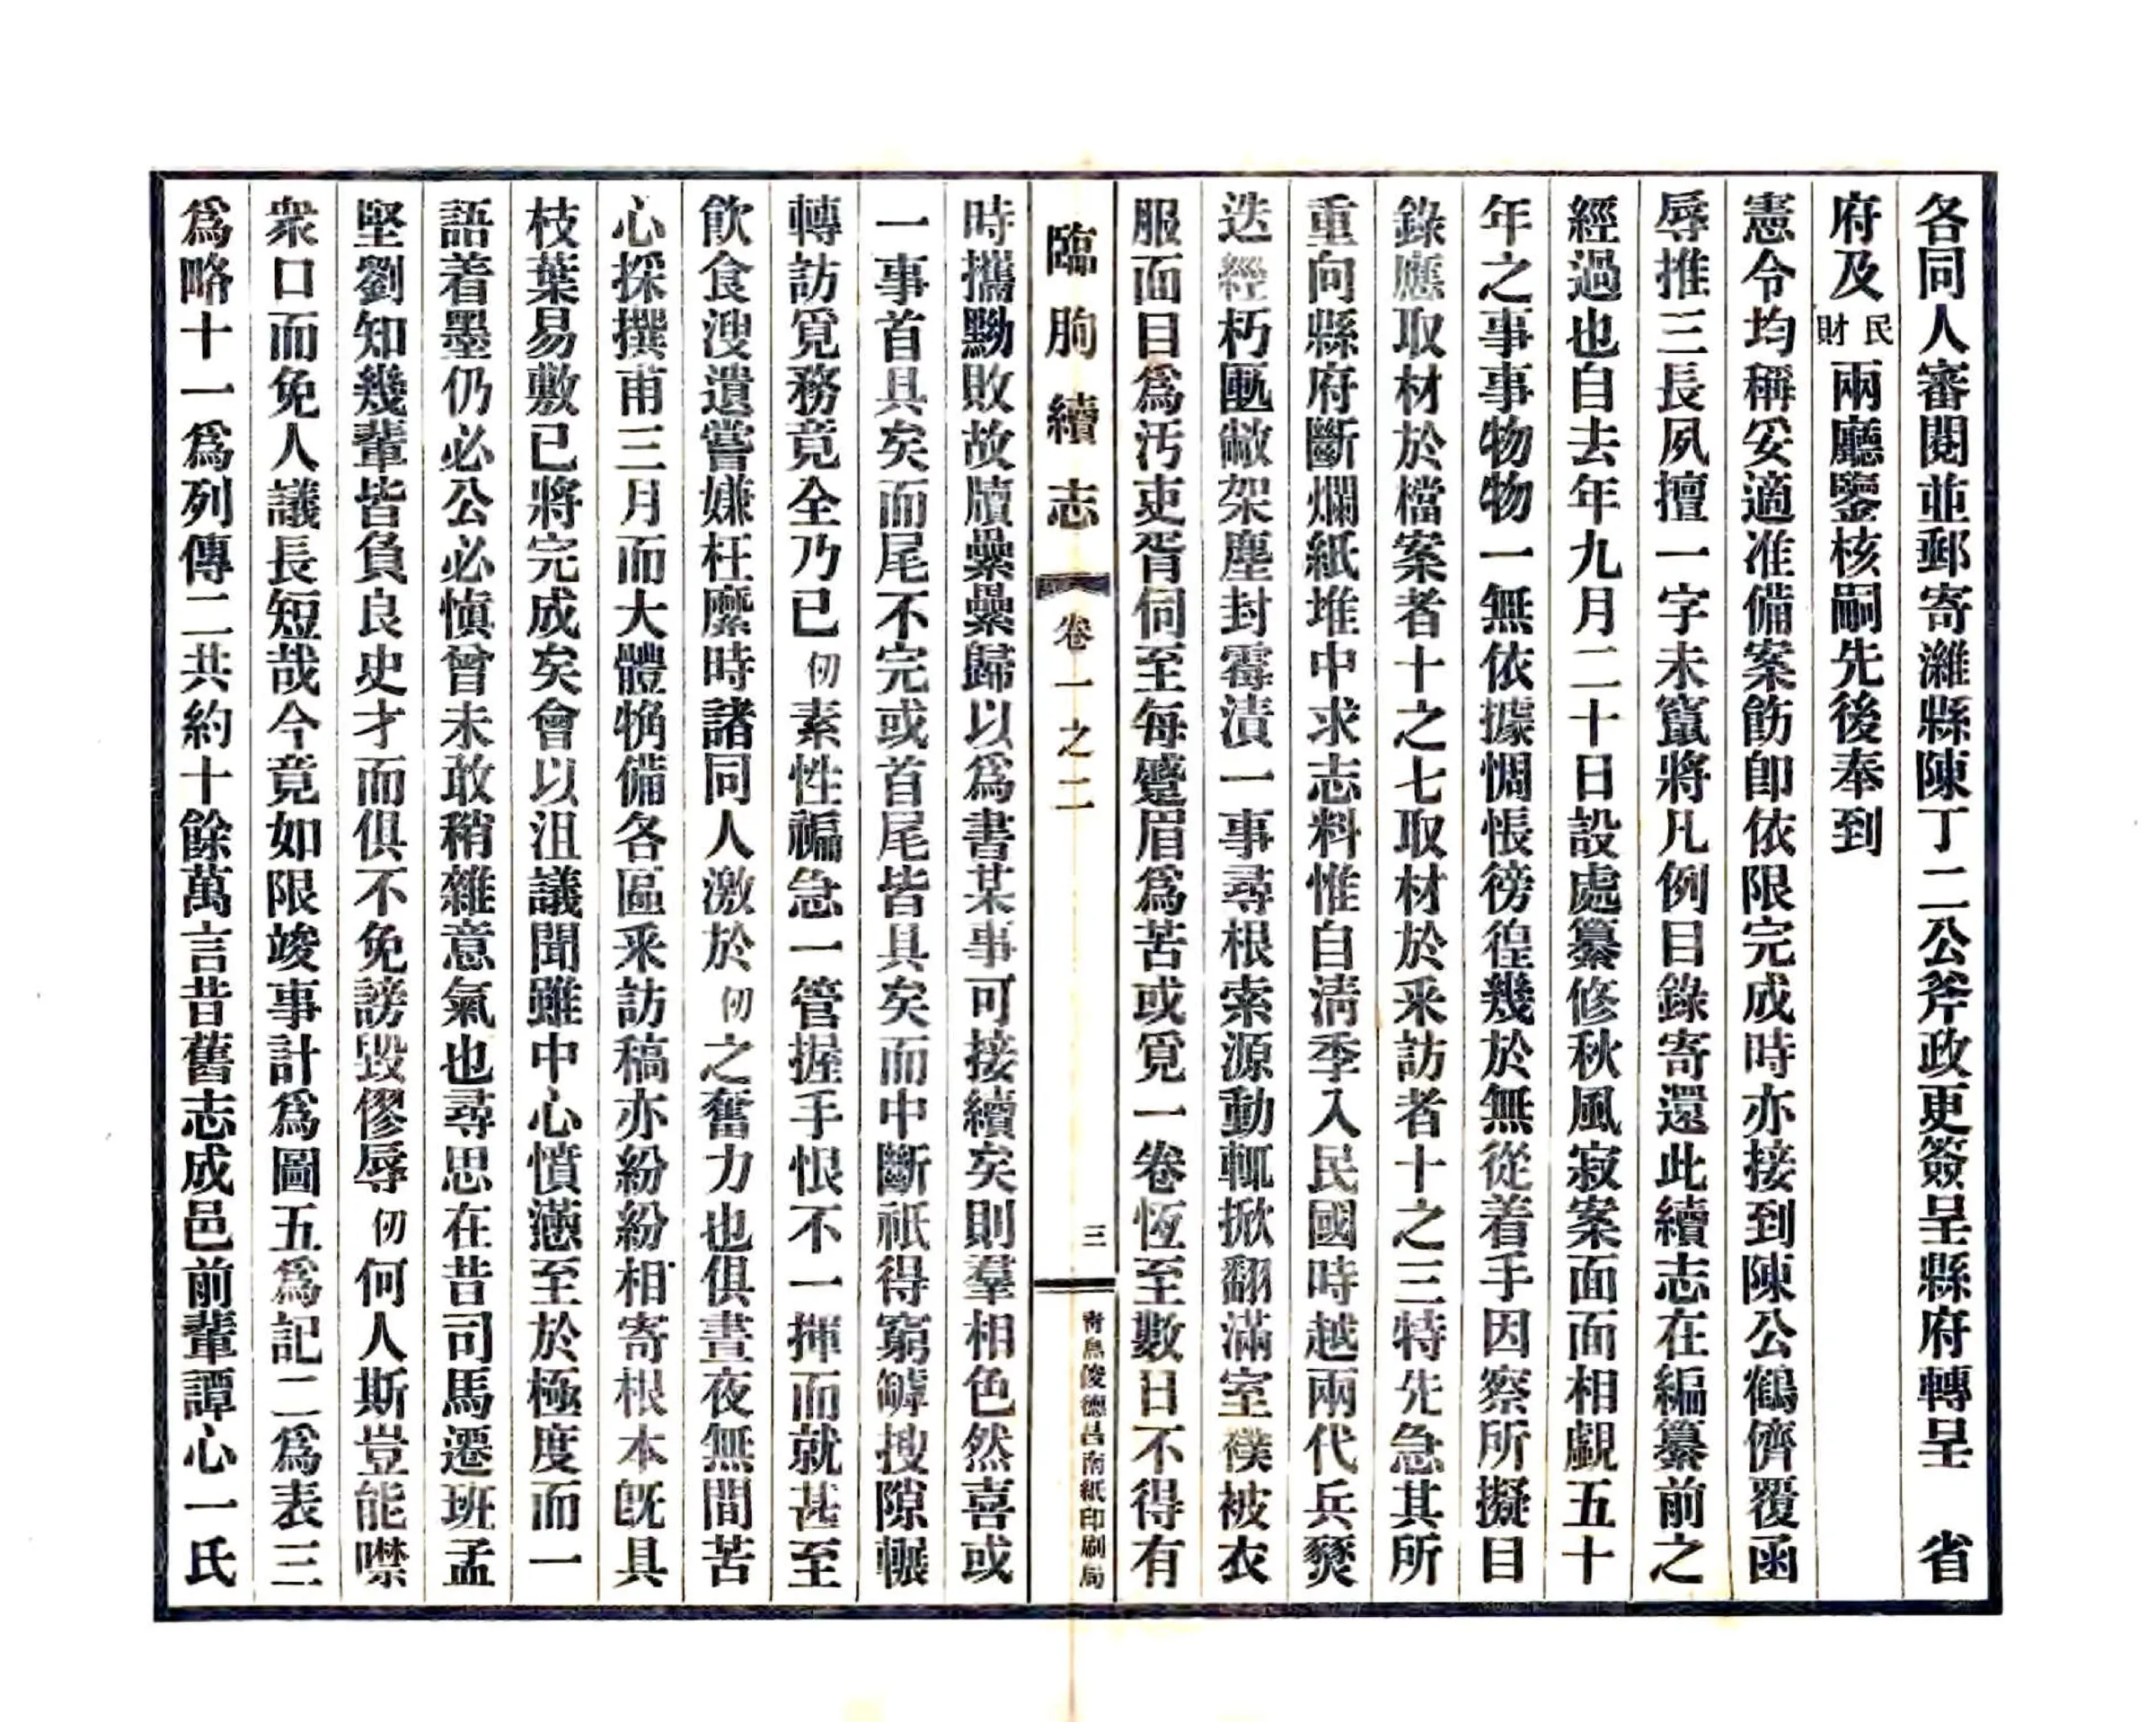 各同人審閱並郵寄濰縣陳丁二公斧政更簽呈縣府轉呈　省
府及民財兩廳鑒核嗣先後奉到
憲令均稱妥適准備案飭卽依限完成時亦接到陳公鶴儕覆函
辱推三長夙擅一字未竄將凡例目錄寄還此續志在編纂前之
經過也自去年九月二十日設處纂修秋風寂案面面相覷五十
年之事事物物一無依據惆悵徬徨幾於無從着手因察所擬目
錄應取材於檔案者十之七取材於采訪者十之三特先急其所
重向縣府斷爛紙堆中求志料惟自淸季入民國時越兩代兵燹
迭經朽匭敝架塵封霉漬一事尋根索源動輒掀翻滿室襆被衣
服面目爲汚吏胥伺至每蹙眉爲苦或覓一卷恆至數日不得有
臨朐續志　卷一之二　三　靑島俊德昌南紙印刷局
時攜黝敗故牘纍纍歸以爲書某事可接續矣則羣相色然喜或
一事首具矣而尾不完或首尾皆具矣而中斷祇得窮罅搜隙輾
轉訪覓務竟全乃已仞素性褊急一管握手恨不一揮而就甚至
飮食溲遺嘗嫌枉縻時諸同人激於仞之奮力也俱晝夜無間苦
心採撰甫三月而大體觕備各區采訪稿亦紛紛相寄根本旣具
枝葉易敷已將完成矣會以沮議聞雖中心憤懣至於極度而一
語着墨仍必公必愼曾未敢稍雜意氣也尋思在昔司馬遷班孟
堅劉知幾輩皆負良史才而俱不免謗毀僇辱仞何人斯豈能噤
衆口而免人議長短哉今竟如限竣事計爲圖五爲記二爲表三
爲略十一爲列傳二共約十餘萬言昔舊志成邑前輩譚心一氏